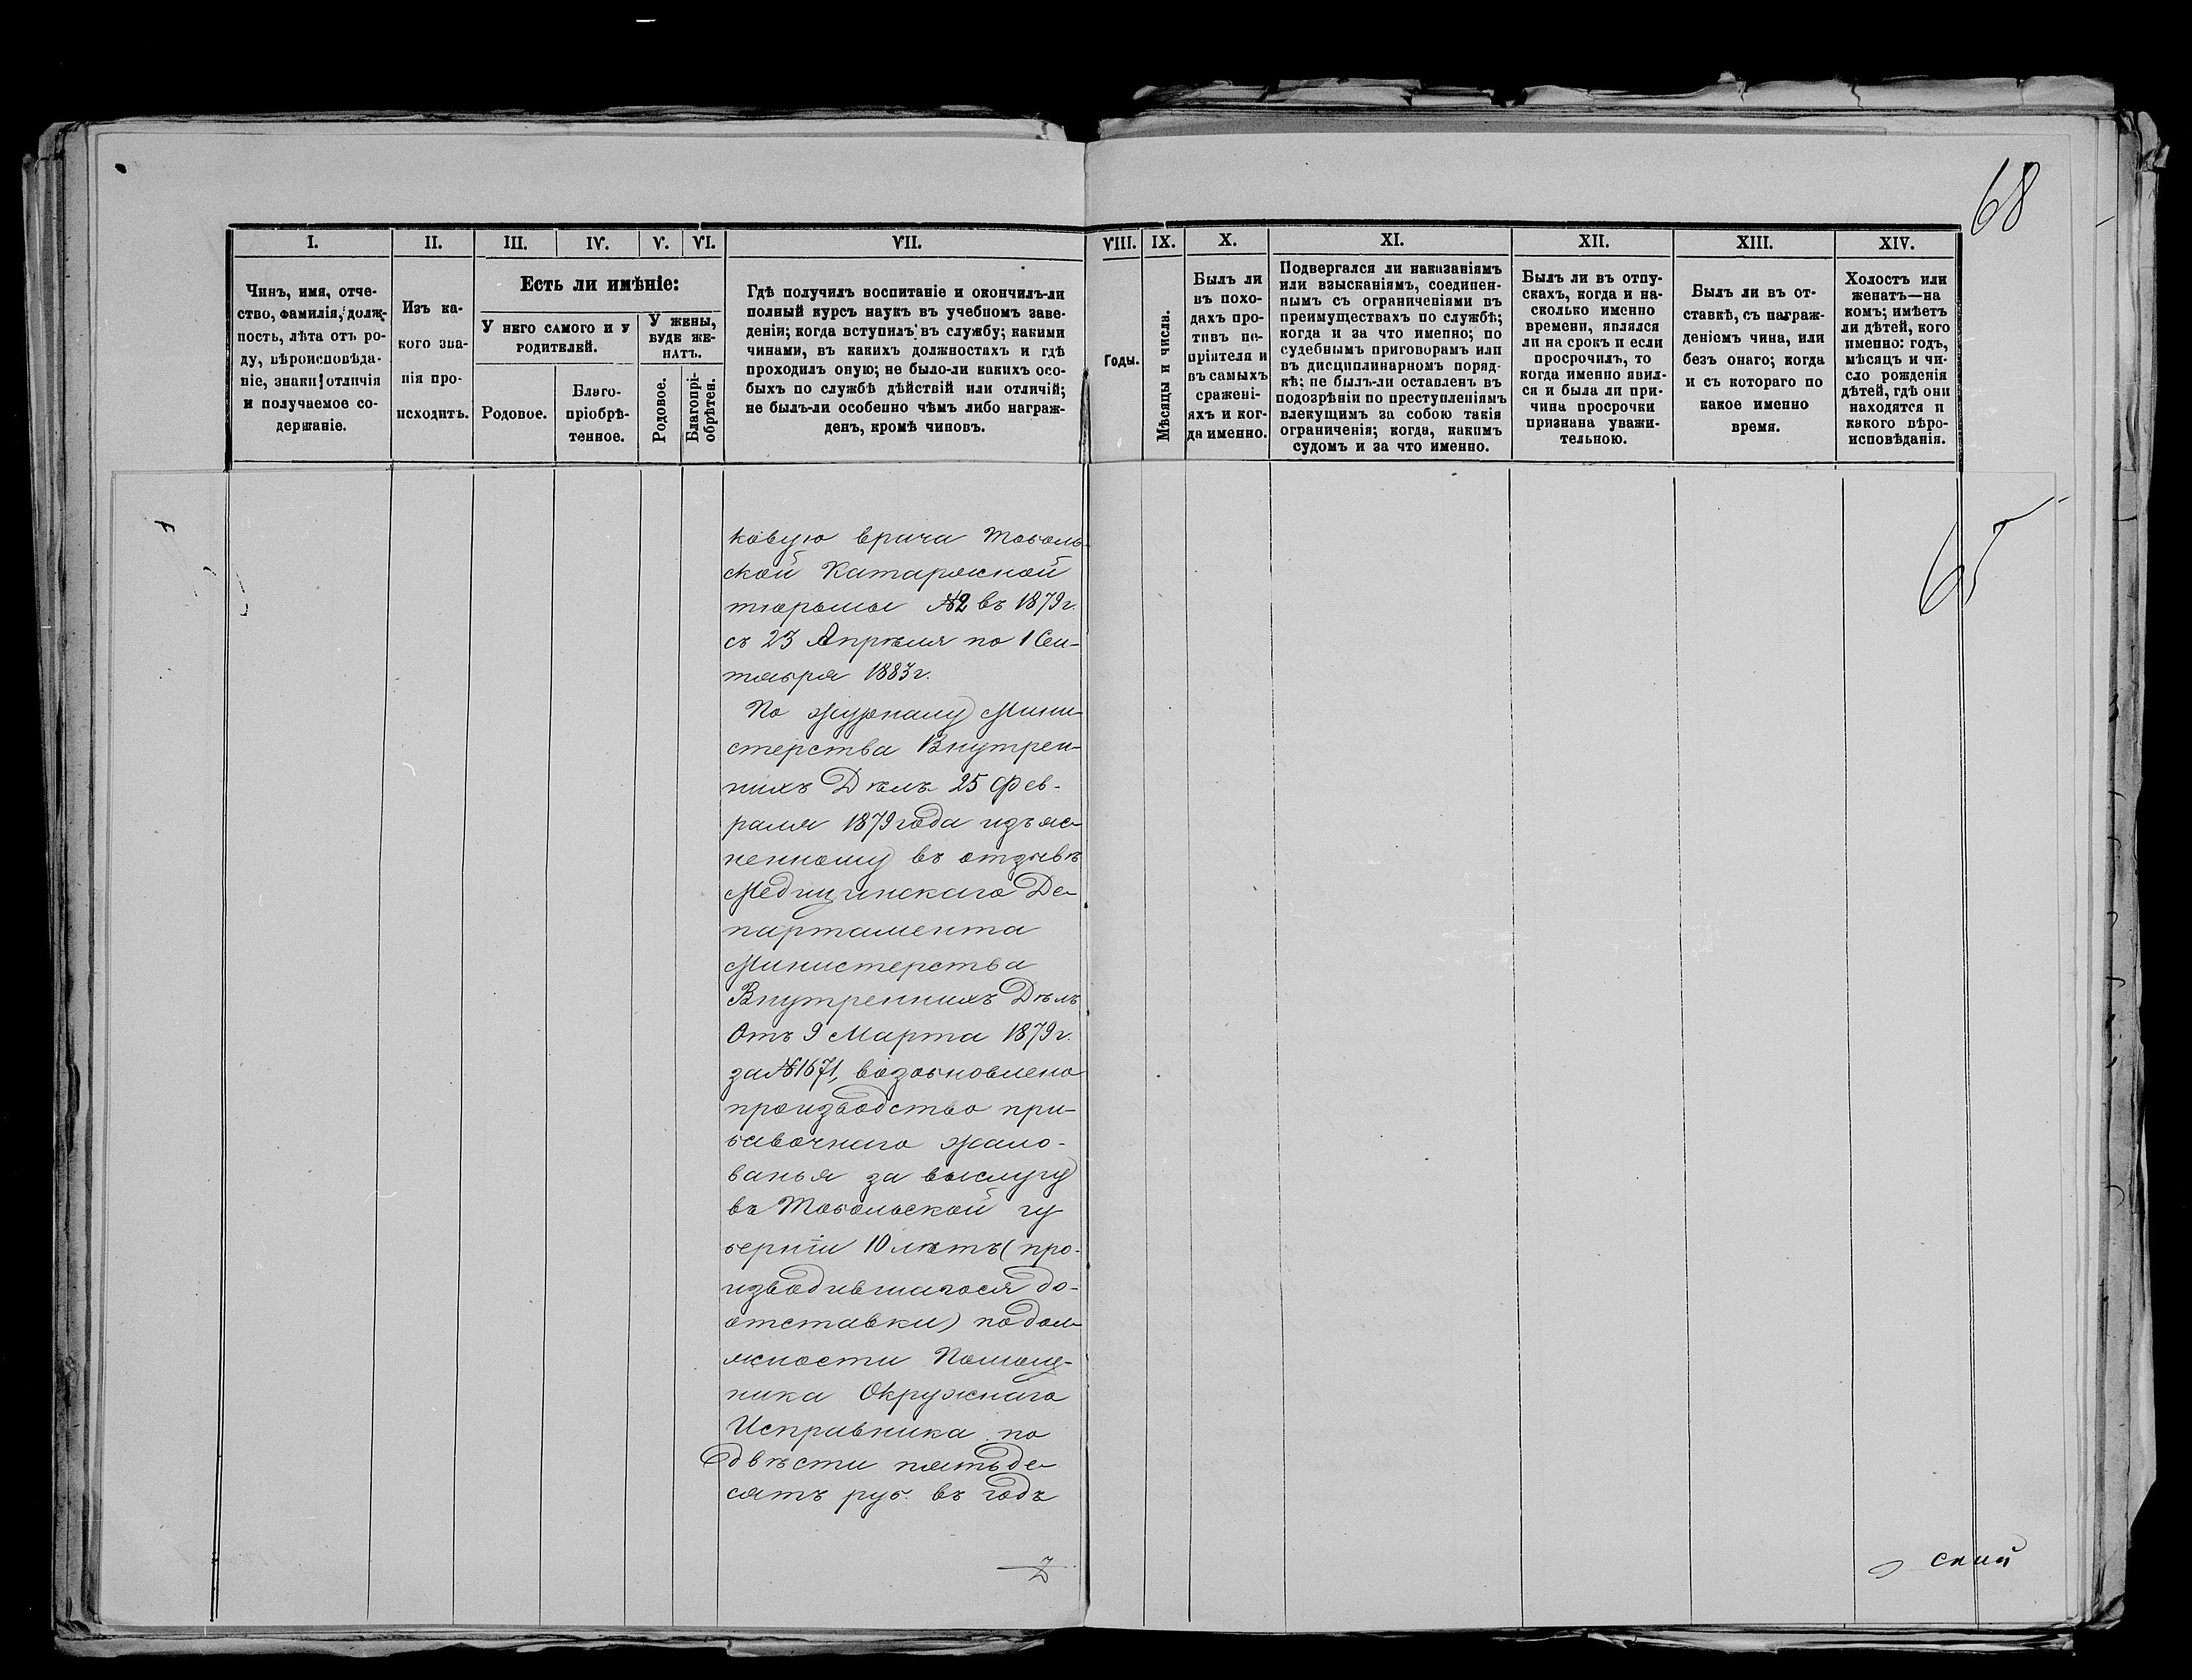 68
I. II. III. IV. V. VI. VII. VIII. IX. X. XI. XII. XIII. XIV.
Чинъ, имя, отче-
ство, фамилія, долж-
ность, лѣта отъ ро-
ду, вѣроисповѣда-
ніе, знаки отличія
и получаемое со-
держаніе.
Изъ ка-
кого зва-
нія про-
исходитъ.
Есть ли имѣніе:
У него самого и у
родителей.
Родовое.
Благо-
пріобрѣ-
тенное.
У жены,
буде же-
натъ.
Родовое.
Благопрі-
обрѣтен.
Гдѣ получилъ воспитаніе и окончилъ-ли
полный курсъ наукъ въ учебномъ заве-
деніи; когда вступилъ въ службу; какими
чинами, въ какихъ должностяхъ и гдѣ
проходилъ оную; не было-ли какихъ осо-
быхъ по службѣ дѣйствій или отличій;
не былъ-ли особенно чѣмъ либо награж-
денъ, кромѣ чиновъ.
Годы.
Мѣсяцы и числа.
Былъ ли
въ похо-
дахъ про-
тивъ не-
пріятеля и
въ самыхъ
сражені-
яхъ и ког-
да именно.
Подвергался ли наказаніямъ
или взысканіямъ, соединен-
нымъ съ ограниченіями въ
преимуществахъ по службѣ;
когда и за что именно; по
судебнымъ приговорамъ или
въ дисциплинарномъ поряд-
кѣ; не былъ-ли оставленъ въ
подозрѣніи по преступленіямъ
влекущимъ за собою такія
ограниченія; когда, какимъ
судомъ и за что именно.
Былъ ли въ отпу-
скахъ, когда и на-
сколько именно
времени, являлся
ли на срокъ и если
просрочилъ, то
когда именно явил-
ся и была ли при-
чина просрочки
признана уважи-
тельною.
Былъ ли въ от-
ставкѣ, съ награж-
деніемъ чина, или
безъ онаго; когда
и съ котораго по
какое именно
время.
Холостъ или
женатъ—на
комъ; имѣетъ
ли дѣтей, кого
именно: годъ,
мѣсяцъ и чи-
сло рожденія
дѣтей, гдѣ они
находятся и
какого вѣро-
исповѣданія.
ковую врача Тоболь-
ской Каторжной
тюрьмы №2 въ 1879г.
съ 23 Апрѣля по 1 Сен-
тября 1883г.
По журналу Мини-
стерства Внутрен-
нихъ Дѣлъ 25 Фев-
раля 1879 года изъяс-
ненному въ отзывѣ
Медицинскаго Де-
партамента
Министерства
Внутреннихъ Дѣлъ
Отъ 9 Марта 1879г.
за №1671, возобновлено
производство при-
бавочнаго жало-
ванья за выслугу
въ Тобольской гу
берніи 10 лѣтъ (про-
изводившагося до-
отставки) по дол-
жности Помощ-
ника Окружнаго
Исправника по
двѣсти пятьде-
сятъ руб. въ годъ
65